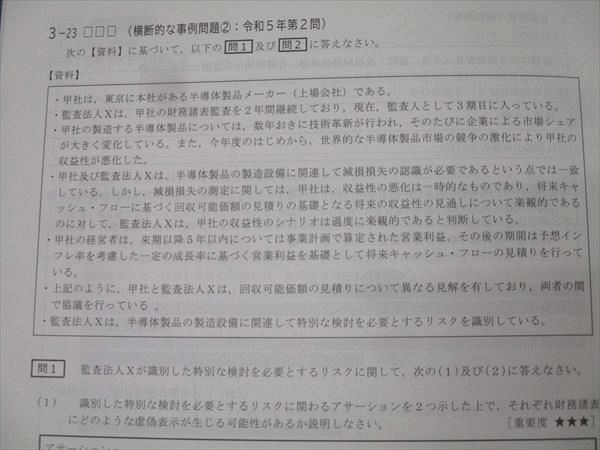 3-23 □□□ (横断的な事例問題②:令和5年第2問)
次の【資料】に基づいて,以下の 問1 及び 問2 に答えなさい。
【資料】
・甲社は,東京に本社がある半導体製品メーカー(上場会社)である。
・監査法人Xは,甲社の財務諸表監査を2年間継続しており,現在,監査人として3期目に入っている。
・甲社の製造する半導体製品については,数年おきに技術革新が行われ,そのたびに企業による市場シェア
が大きく変化している。また,今年度のはじめから,世界的な半導体製品市場の競争の激化により甲社の
収益性が悪化した。
・甲社及び監査法人Xは,半導体製品の製造設備に関連して減損損失の認識が必要であるという点では一致
している。しかし,減損損失の測定に関しては,甲社は,収益性の悪化は一時的なものであり,将来キャ
ッシュ・フローに基づく回収可能価額の見積りの基礎となる将来の収益性の見通しについて楽観的である
のに対して,監査法人Xは,甲社の収益性のシナリオは過度に楽観的であると判断している。
・甲社の経営者は,来期以降5年以内については事業計画で算定された営業利益,その後の期間は予想イン
フレ率を考慮した一定の成長率に基づく営業利益を基礎として将来キャッシュ・フローの見積りを行って
いる。
・上記のように,甲社と監査法人Xは,回収可能価額の見積りについて異なる見解を有しており,両者の間
で協議を行っている。
・監査法人Xは,半導体製品の製造設備に関連して特別な検討を必要とするリスクを識別している。
問1 監査法人Xが識別した特別な検討を必要とするリスクに関して,次の(1)及び(2)に答えなさい。
(1) 識別した特別な検討を必要とするリスクに関わるアサーションを2つ示した上で,それぞれ財務諸表
にどのような虚偽表示が生じる可能性があるか説明しなさい。 [重要度 ★★★]